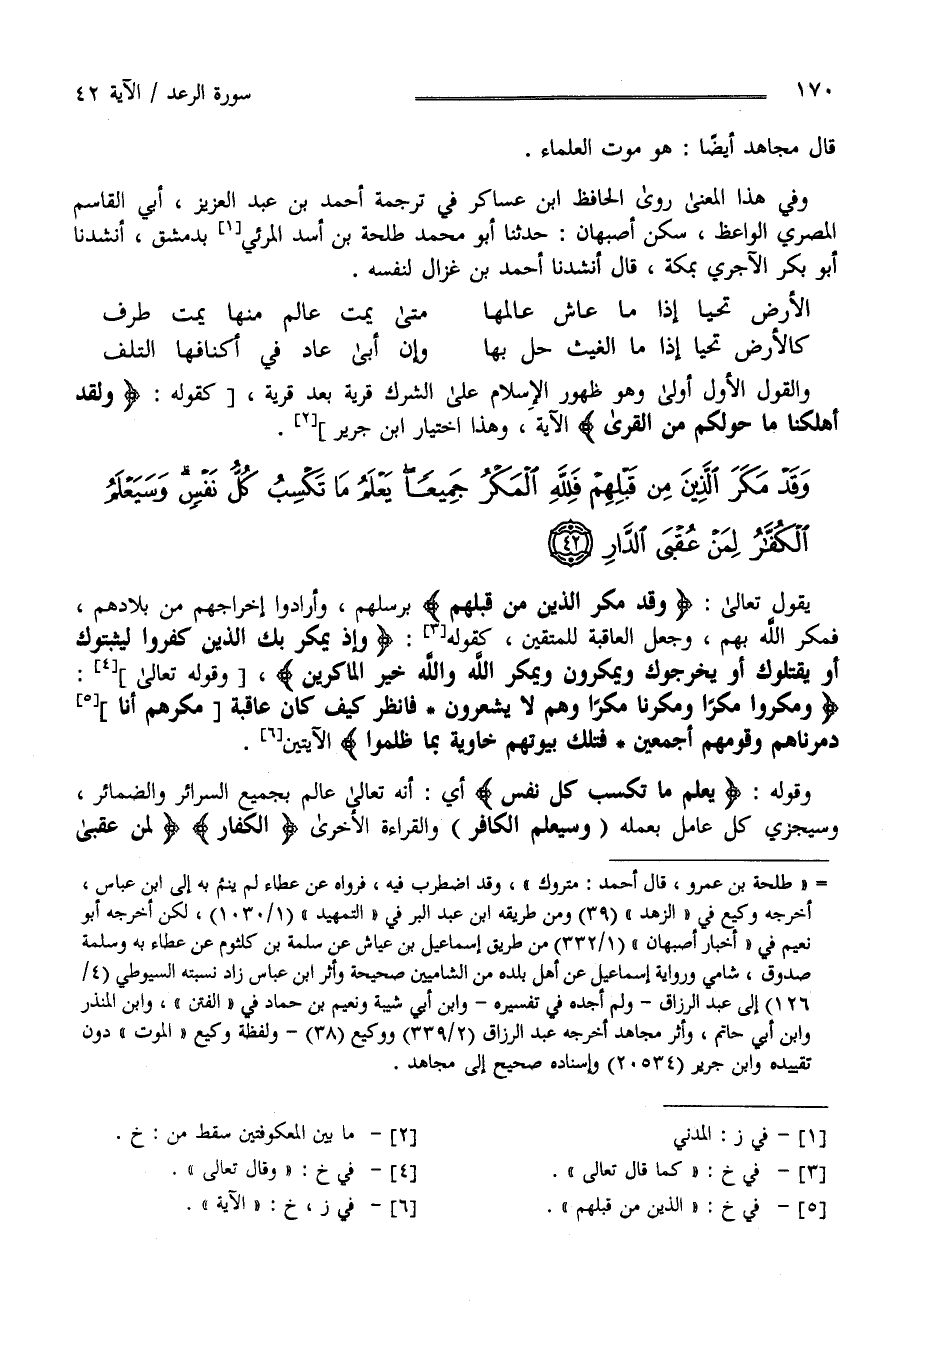 ١٧٠ سورة الرعد / الآية ٤٢
قال مجاهد أيضًا : هو موت العلماء .
وفي هذا المعنىٰ روىٰ الحافظ ابن عساكر في ترجمة أحمد بن عبد العزيز ، أبي القاسم
المصري الواعظ ، سكن أصبهان : حدثنا أبو محمد طلحة بن أسد المرئي[١] بدمشق ، أنشدنا
أبو بكر الآجري بمكة ، قال أنشدنا أحمد بن غزال لنفسه .
الأرض تحيا إذا ما عاش عالمها متىٰ يمت عالم منها يمت طرف
كالأرض تحيا إذا ما الغيث حل بها وإن أبىٰ عاد في أكنافها التلف
والقول الأول أولىٰ وهو ظهور الإسلام علىٰ الشرك قرية بعد قرية ، [ كقوله : ﴿ ولقد
أهلكنا ما حولكم من القرىٰ ﴾ الآية ، وهذا اختيار ابن جرير ][٢] .
وَقَدْ مَكَرَ ٱلَّذِينَ مِن قَبْلِهِمْ فَلِلَّهِ ٱلْمَكْرُ جَمِيعًاۖ يَعْلَمُ مَا تَكْسِبُ كُلُّ نَفْسٍۗ وَسَيَعْلَمُ
ٱلْكُفَّٰرُ لِمَنْ عُقْبَى ٱلدَّارِ ٤٢
يقول تعالىٰ : ﴿ وقد مكر الذين من قبلهم ﴾ برسلهم ، وأرادوا إخراجهم من بلادهم ،
فمكر اللَّه بهم ، وجعل العاقبة للمتقين ، كقوله[٣] : ﴿ وإذ يمكر بك الذين كفروا ليثبتوك
أو يقتلوك أو يخرجوك ويمكرون ويمكر اللَّه واللَّه خير الماكرين ﴾ ، [ وقوله تعالىٰ ][٤] :
﴿ ومكروا مكرًا ومكرنا مكرًا وهم لا يشعرون * فانظر كيف كان عاقبة [ مكرهم أنا ][٥]
دمرناهم وقومهم أجمعين * فتلك بيوتهم خاوية بما ظلموا ﴾ الآيتين[٦] .
وقوله : ﴿ يعلم ما تكسب كل نفس ﴾ أي : أنه تعالىٰ عالم بجميع السرائر والضمائر ،
وسيجزي كل عامل بعمله ( وسيعلم الكافر ) والقراءة الأخرىٰ ﴿ الكفار ﴾ ﴿ لمن عقبىٰ
= « طلحة بن عمرو ، قال أحمد : متروك » ، وقد اضطرب فيه ، فرواه عن عطاء لم ينمُ به إلى ابن عباس ،
أخرجه وكيع في « الزهد » (٣٩) ومن طريقه ابن عبد البر في « التمهيد » (١٠٣٠/١) ، لكن أخرجه أبو
نعيم في « أخبار أصبهان » (٣٣٢/١) من طريق إسماعيل بن عياش عن سلمة بن كلثوم عن عطاء به وسلمة
صدوق ، شامي ورواية إسماعيل عن أهل بلده من الشاميين صحيحة وأثر ابن عباس زاد نسبته السيوطي (٤/
١٢٦) إلى عبد الرزاق - ولم أجده في تفسيره - وابن أبي شيبة ونعيم بن حماد في « الفتن » ، وابن المنذر
وابن أبي حاتم ، وأثر مجاهد أخرجه عبد الرزاق (٣٣٩/٢) ووكيع (٣٨) - ولفظة وكيع « الموت » دون
تقييده وابن جرير (٢٠٥٣٤) وإسناده صحيح إلى مجاهد .
[١] - في ز : المدني [٢] - ما بين المعكوفتين سقط من : خ .
[٣] - في خ : « كما قال تعالى » . [٤] - في خ : « وقال تعالى » .
[٥] - في خ : « الذين من قبلهم » . [٦] - في ز ، خ : « الآية » .